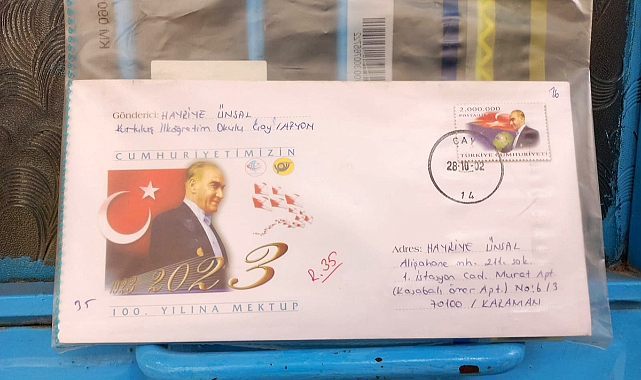 KM 090
Gönderici: HAYRİYE ÜNSAL
Kurtuluş İlköğretim Okulu Çay/AFYON
CUMHURİYETİMİZİN
2023
100. YILINA MEKTUP
35
R.35
76
2.000.000
TÜRKİYE CUMHURİYETİ
ÇAY
28-10-02
14
Adres: HAYRİYE ÜNSAL
Alişahane mh. 211. sok.
1. İstasyon Cad. Murat Apt.
No: 6/3
70100 / KARAMAN